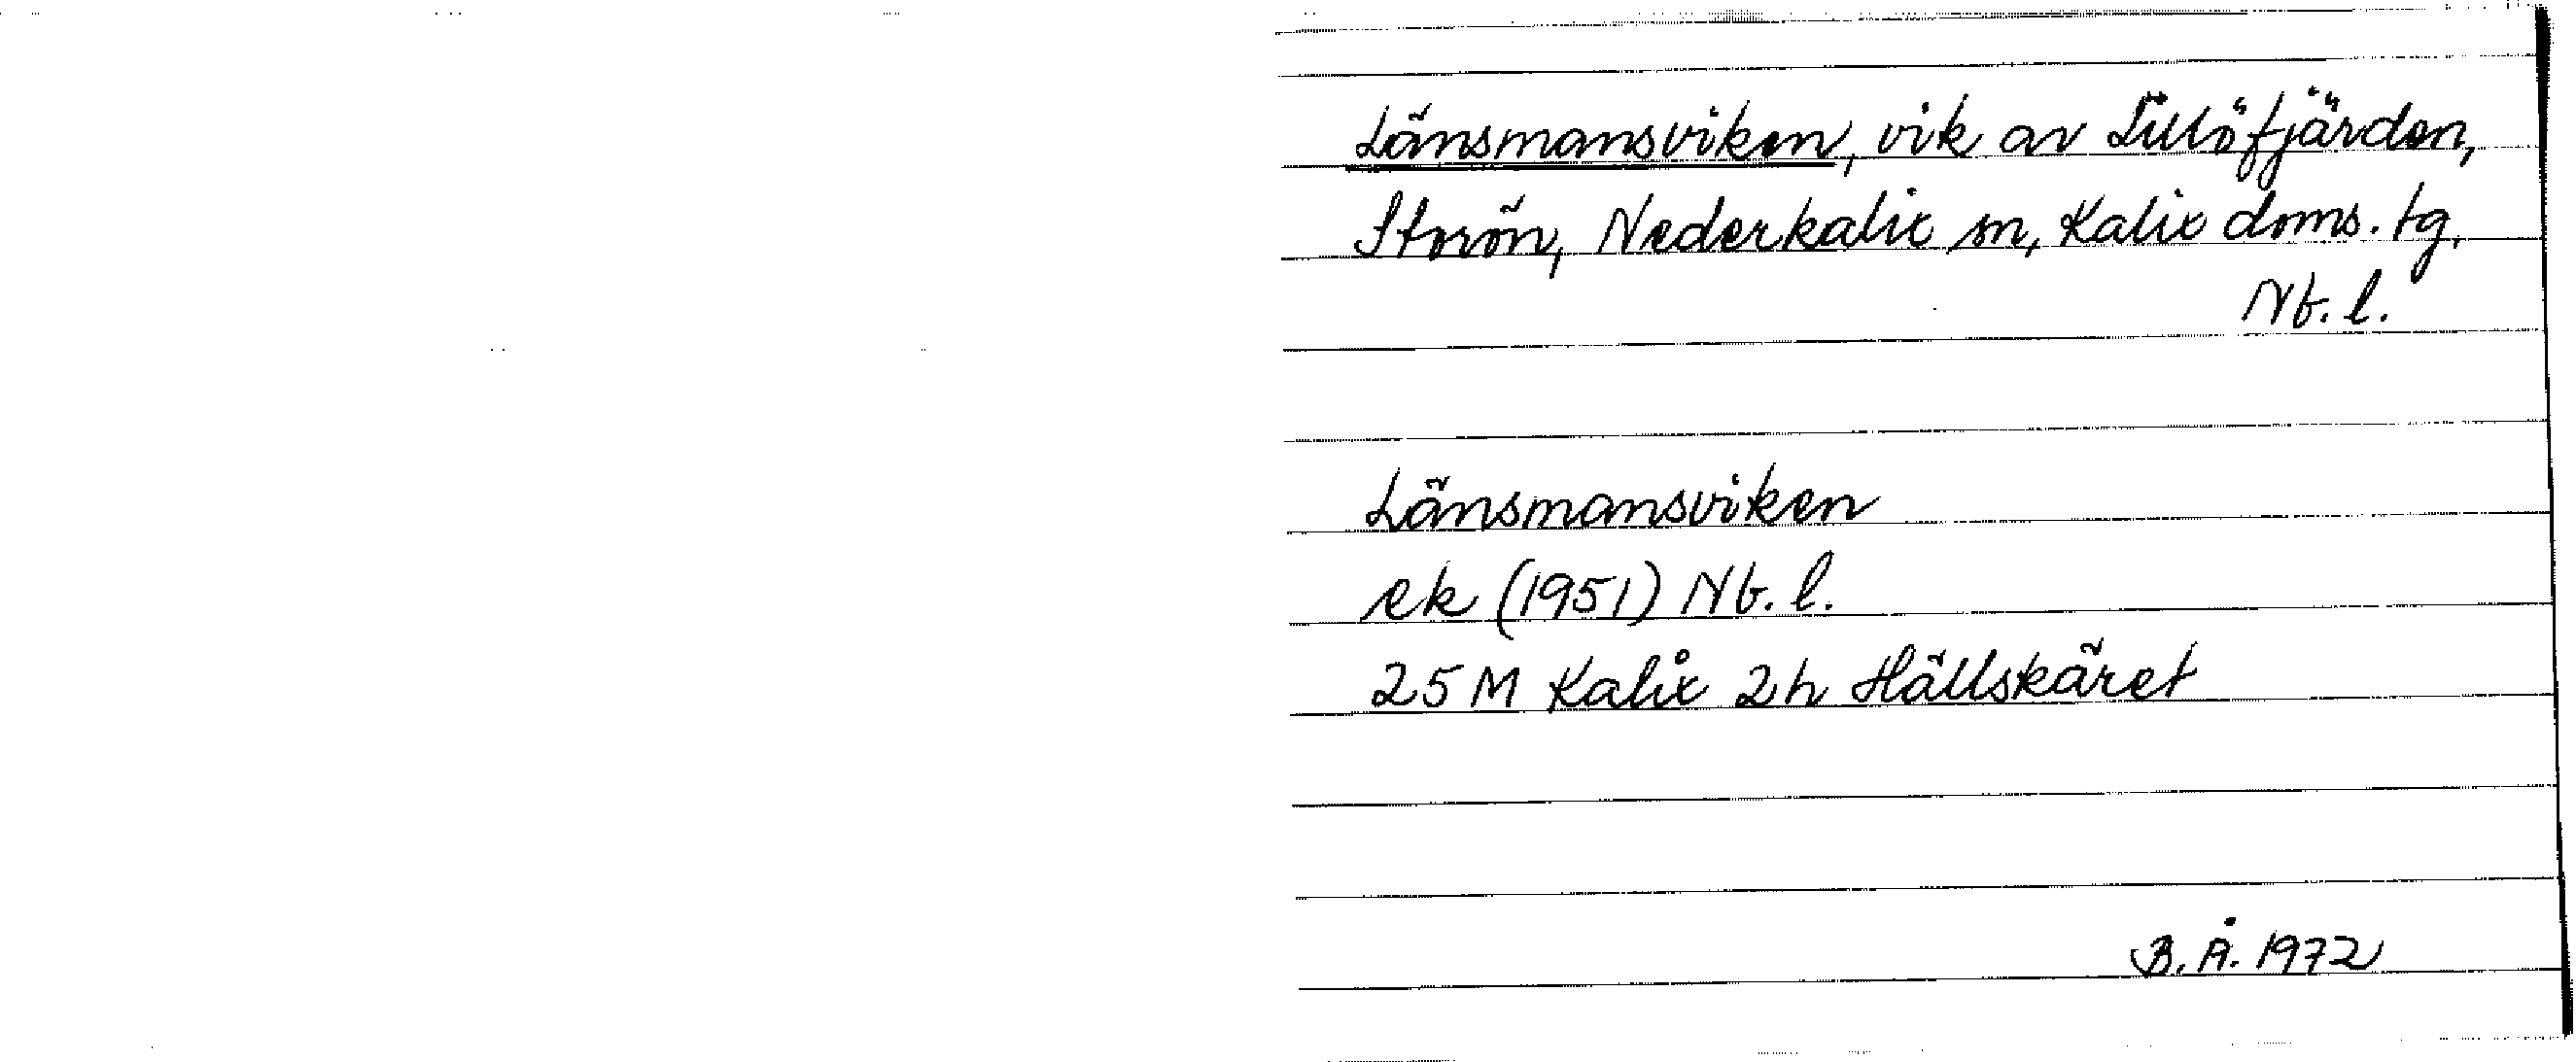 Länsmansviken, vik av Lillöfjärden,
Storön, Nederkalix sn, Kalix doms. tg,
Nb. l.
Länsmansviken
ek (1951) Nb. l.
25 M Kalix 2h Hällskäret
B. Å. 1972